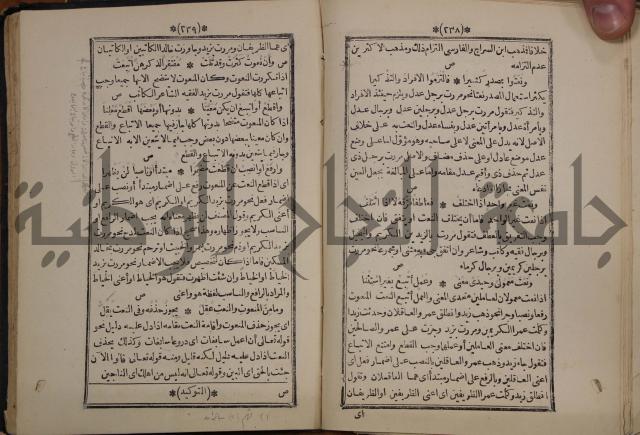 *(٢٣٨)*
خلافا فذهب ابن السراج والفارسى التزام ذلك ومذهب الاكثرين
عدم التزامه
ص
ونعتوا بمصدر كثيرا * فالتزموا الافراد والتذكيرا
يكثر استعمال المصدر نعتا نحو مررت برجل عدل ويلزم حينئذ الافراد
والتذكير فتقول مررت برجل عدل وبرجلين عدل وبرجال عدل
وبامرأة عدل وبامرأتين عدل وبنساء عدل والنعت به على خلاف
الاصل لانه يدل على المعنى لا على صاحبه وهو مؤول اما على وضع
عدل موضع عادل او على حذف مضاف والاصل مررت برجل ذى
عدل ثم حذف ذى واقيم عدل مقامه واما على المبالغة بجعل العين
نفس المعنى مجازا او ادعاء
ص
ونعت غير واحد اذا اختلف * فعاطفا فرقه لا اذا ائتلف
اذا نعت غير الواحد فاما ان يختلف النعت او يتفق فان اختلف
وجب التفريق بالعطف فتقول مررت بالزيدين الكريم والبخيل
وبرجال فقيه وكاتب وشاعر وان اتفق جىء به مثنى او مجموعا نحو مررت
برجلين كريمين وبرجال كرماء
ص
ونعت معمولى وحيدى معنى * وعمل أتبع بغير استثنا
اذا نعت معمولان لعاملين متحدى المعنى والعمل أتبع النعت المنعوت
رفعا ونصبا وجرا نحو ذهب زيد وانطلق عمرو العاقلان وحدثت زيدا
وكلمت عمرا الكريمين ومررت بزيد وجزت على عمرو الصالحين
فان اختلف معنى العاملين او عملهما وجب القطع وامتنع الاتباع
فتقول جاء زيد وذهب عمرو العاقلين بالنصب على اضمار فعل اى
اعنى العاقلين وبالرفع على اضمار مبتدأ اى هما العاقلان وتقول
انطلق زيد وكلمت عمرا الظريفين اى اعنى الظريفين او الظريفان
اى
*(٢٣٩)*
اى هما الظريفان ومررت بزيد وجاوزت خالدا الكاتبين او الكاتبان
ص
وان نعوت كثرت وقد تلت * مفتقرا لذكرهن اتبعت
اذا تكررت النعوت وكان المنعوت لا يتضح الا بها جميعا وجب
اتباعها كلها فتقول مررت بزيد الفقيه الشاعر الكاتب
ص
واقطع او اتبع ان يكن معينا * بدونها او بعضها اقطع معلنا
اذا كان المنعوت متضحا بدونها كلها جاز فيها جميعا الاتباع والقطع
وان كان معينا ببعضها دون بعض وجب فيما لا يتعين الا به الاتباع
وجاز فيما يتعين بدونه الاتباع والقطع
ص
وارفع او انصب ان قطعت مضمرا * مبتدأ او ناصبا لن يظهرا
اى اذا قطع النعت عن المنعوت رفع على اضمار مبتدأ او نصب على
اضمار فعل نحو مررت بزيد الكريم او الكريم اى هو الكريم او
اعنى الكريم وقول المصنف لن يظهرا معناه انه يجب اضمار الرافع او
الناصب ولا يجوز اظهاره وهذا صحيح اذا كان النعت لمدح نحو مررت
بزيد الكريم او ذم نحو مررت بعمرو الخبيث او ترحم نحو مررت بخالد
المسكين فاما اذا كان لتخصيص فلا يجب الاضمار نحو مررت بزيد
الخياط او الخياط وان شئت اظهرت فتقول هو الخياط او اعنى الخياط
والمراد بالرافع والناصب لفظة هو واعنى
ص
وما من المنعوت والنعت عقل * يجوز حذفه وفى النعت يقل
اى يجوز حذف المنعوت واقامة النعت مقامه اذا دل عليه دليل نحو
قوله تعالى أن اعمل سابغات اى دروعا سابغات وكذلك يحذف
النعت اذا دل عليه دليل لكنه قليل ومنه قوله تعالى قالوا الآن
جئت بالحق اى البين وقوله تعالى انه ليس من اهلك اى الناجين
ص *(التوكيد)* ص
جامعة النجاح الوطنية